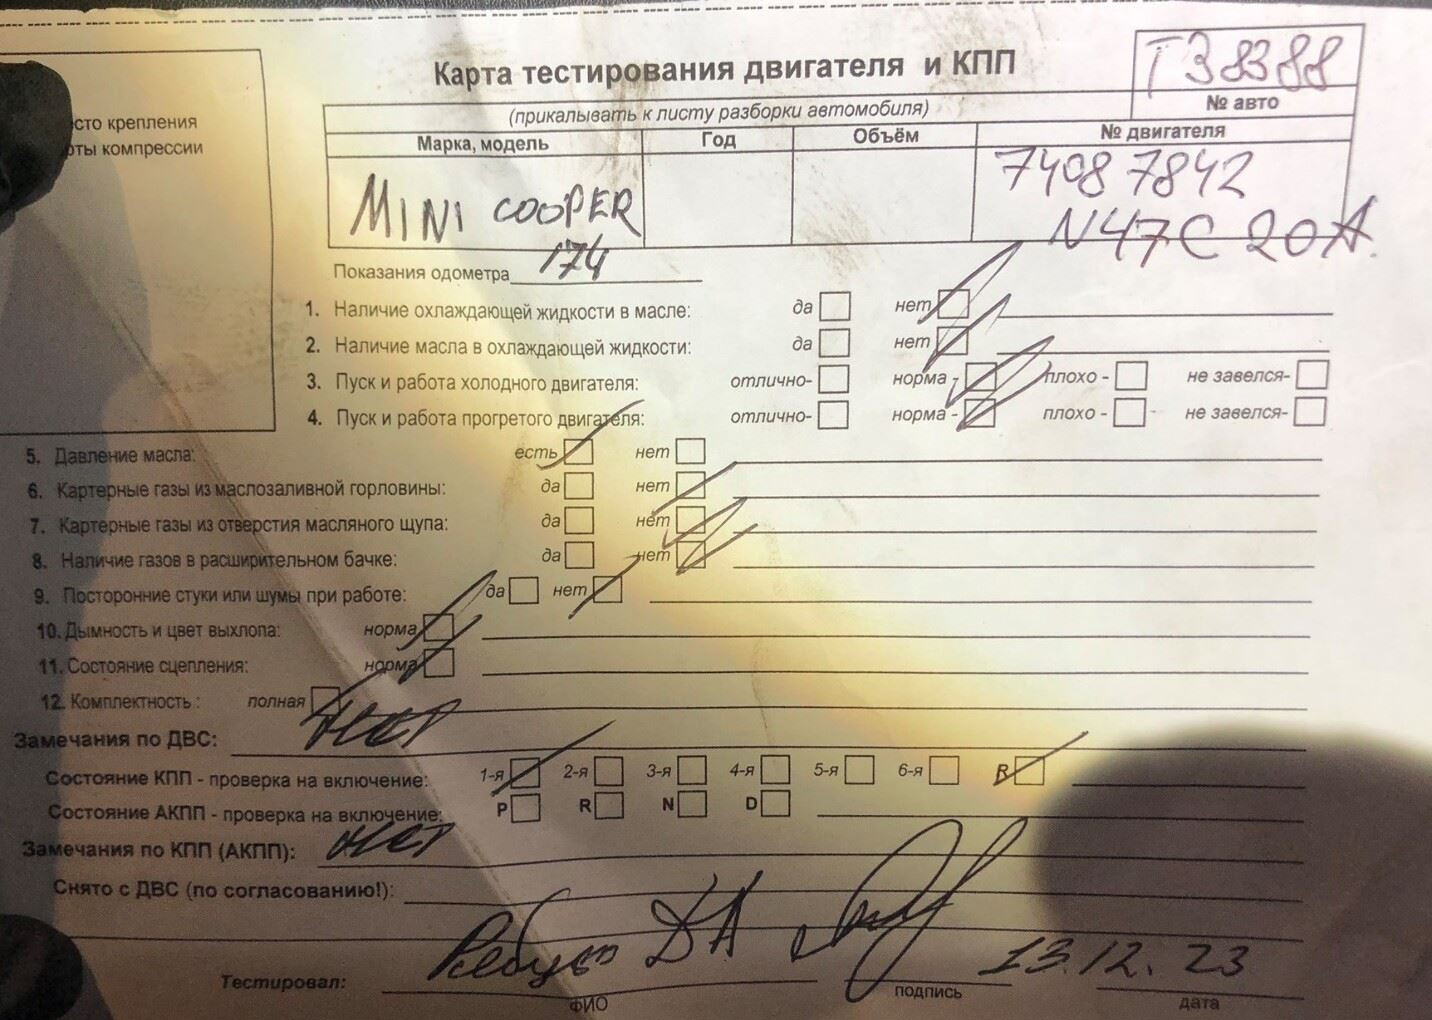 Карта тестирования двигателя и КПП
Т38388
№ авто
(прикалывать к листу разборки автомобиля)
сто крепления
рты компрессии
Марка, модель Год Объём № двигателя
MINI COOPER 74087842
N47C20A
Показания одометра 174
1. Наличие охлаждающей жидкости в масле: да нет
2. Наличие масла в охлаждающей жидкости: да нет
3. Пуск и работа холодного двигателя: отлично- норма- плохо - не завелся-
4. Пуск и работа прогретого двигателя: отлично- норма - плохо - не завелся-
5. Давление масла: есть нет
6. Картерные газы из маслозаливной горловины: да нет
7. Картерные газы из отверстия масляного щупа: да нет
8. Наличие газов в расширительном бачке: да нет
9. Посторонние стуки или шумы при работе: да нет
10. Дымность и цвет выхлопа: норма
11. Состояние сцепления: норма
12. Комплектность : полная
Замечания по ДВС: нет
Состояние КПП - проверка на включение: 1-я 2-я 3-я 4-я 5-я 6-я R
Состояние АКПП - проверка на включение: P R N D
Замечания по КПП (АКПП): нет
Снято с ДВС (по согласованию!):
Тестировал: ДА 13.12.23
ФИО подпись дата